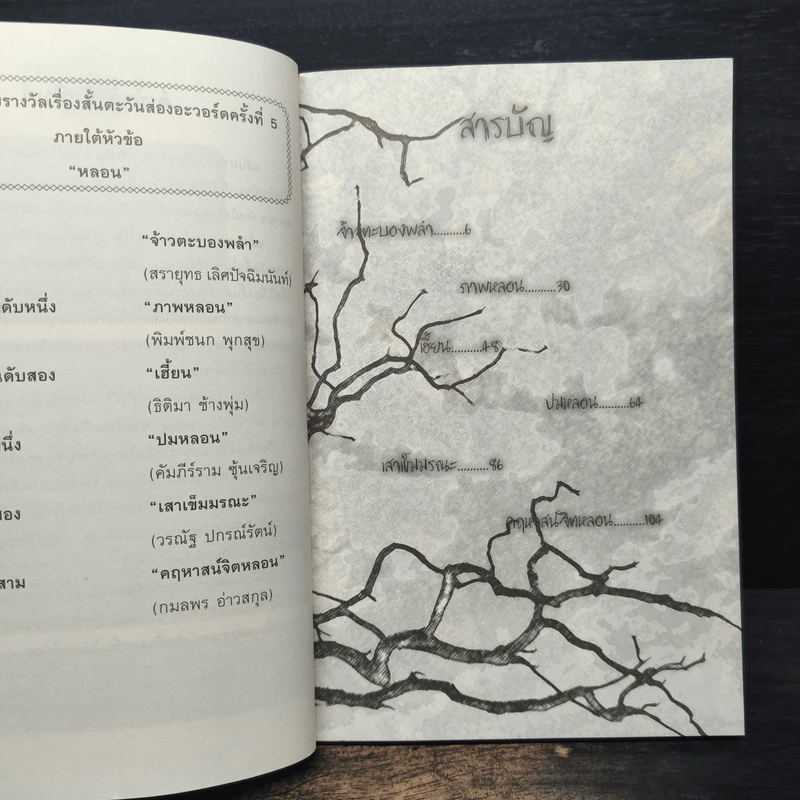 รางวัลเรื่องสั้นตะวันส่องอะวอร์ดครั้งที่ 5
ภายใต้หัวข้อ
“หลอน”
“จ้าวตะบองพลำ”
(สรายุทธ เลิศปัจฉิมนันท์)
ดับหนึ่ง “ภาพหลอน”
(พิมพ์ชนก พุกสุข)
ดับสอง “เฮี้ยน”
(ธิติมา ช้างพุ่ม)
นึ่ง “ปมหลอน”
(คัมภีร์ราม ซุ้นเจริญ)
สอง “เสาเข็มมรณะ”
(วรณัฐ ปกรณ์รัตน์)
สาม “คฤหาสน์จิตหลอน”
(กมลพร อ่าวสกุล)
สารบัญ
จ้าวตะบองพลำ..........6
ภาพหลอน..........30
เฮี้ยน..........48
ปมหลอน..........64
เสาเข็มมรณะ..........86
คฤหาสน์จิตหลอน..........104